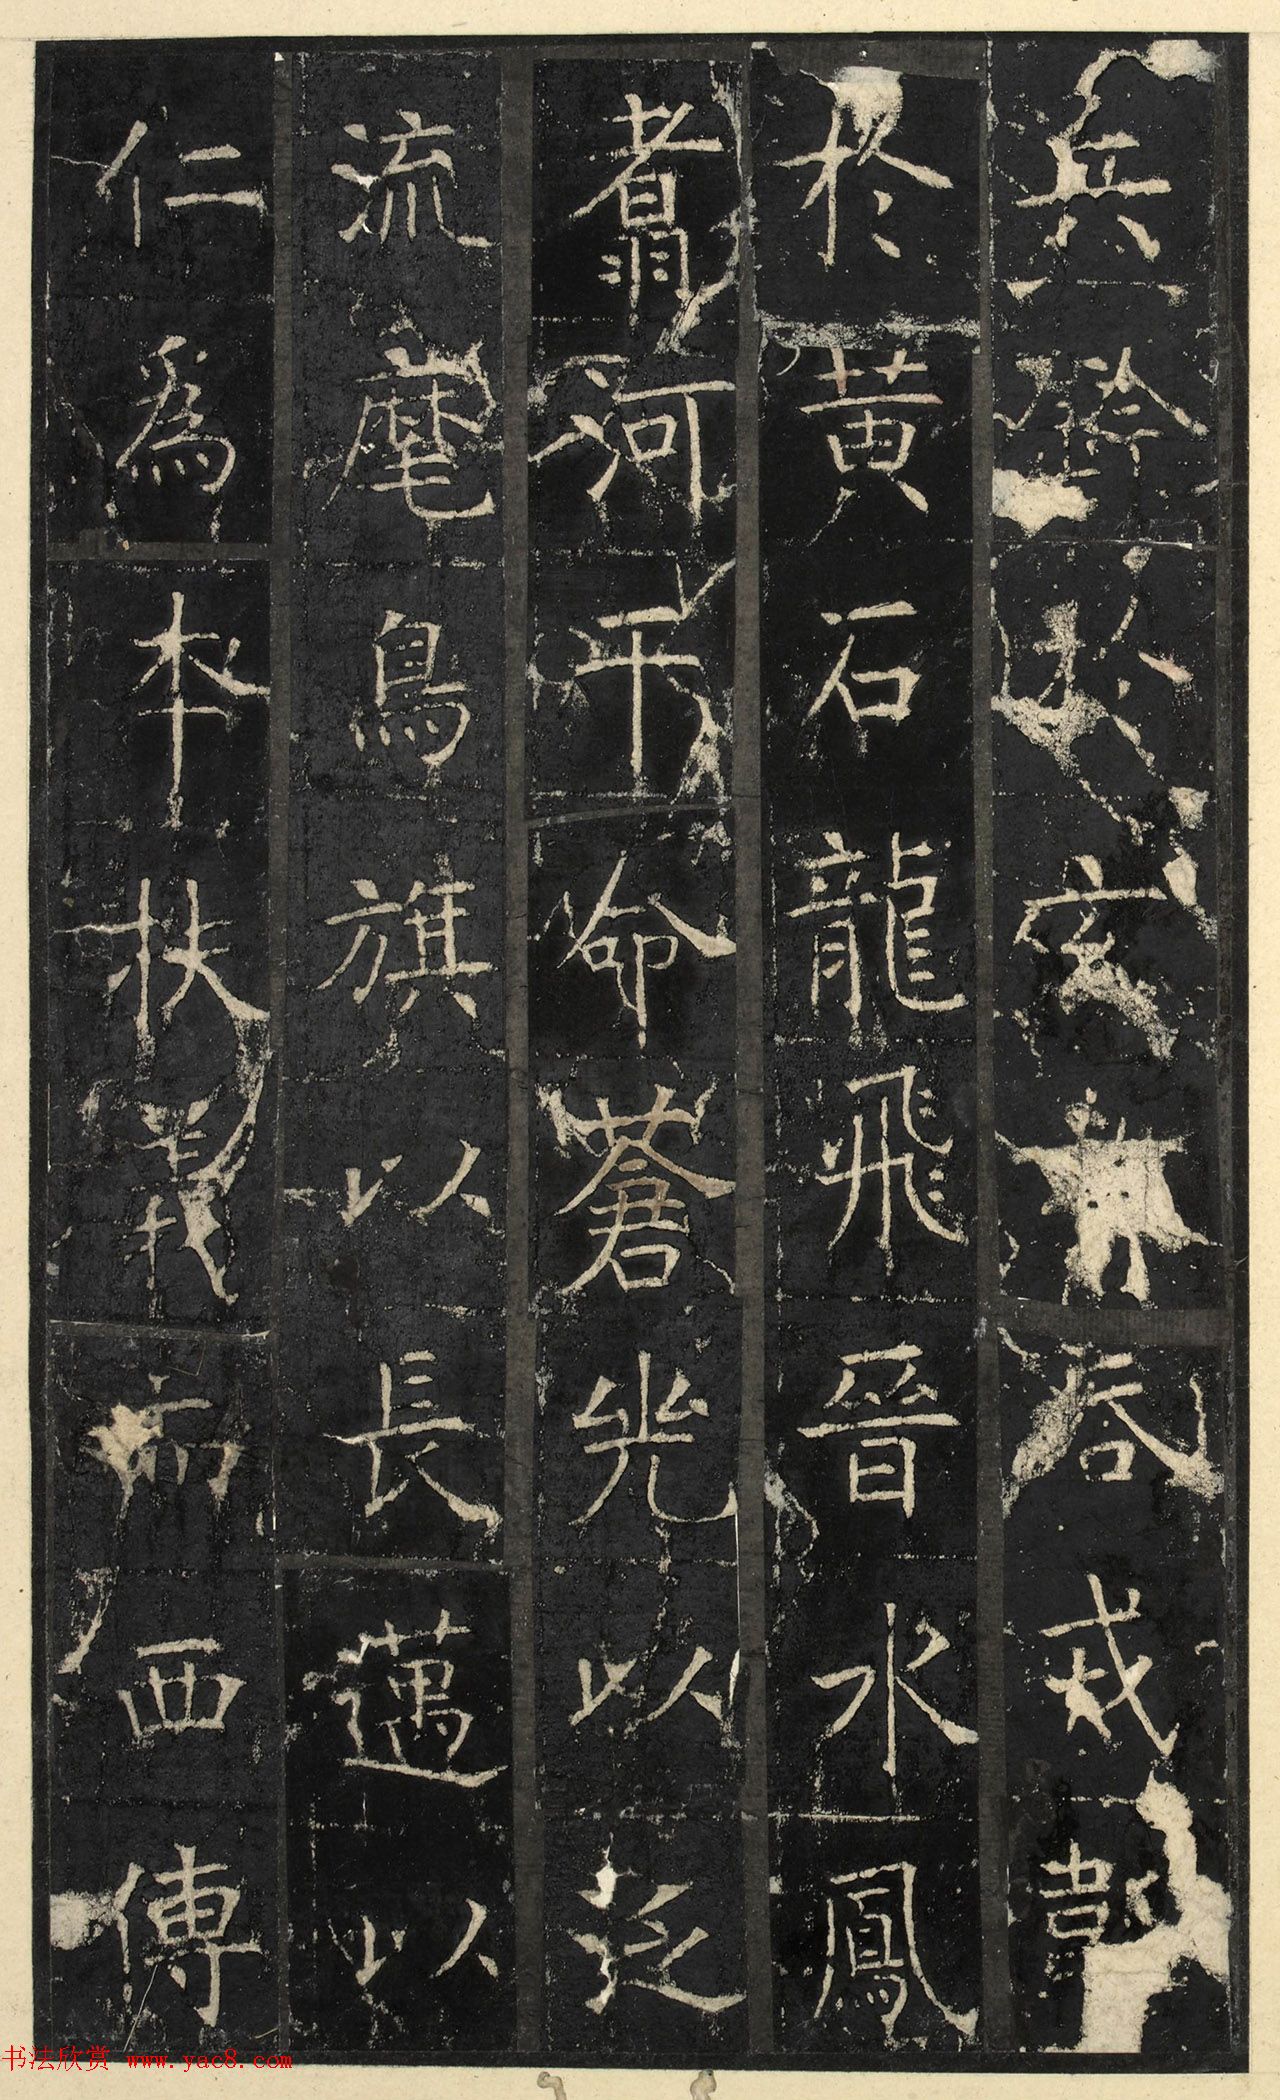 兵鈐於玄戎韜
於黃石龍飛晉水鳳
翥河干命蒼兕以泛
流麾鳥旗以長邁以
仁爲本扶義而西傳
书法欣赏 www.yac8.com